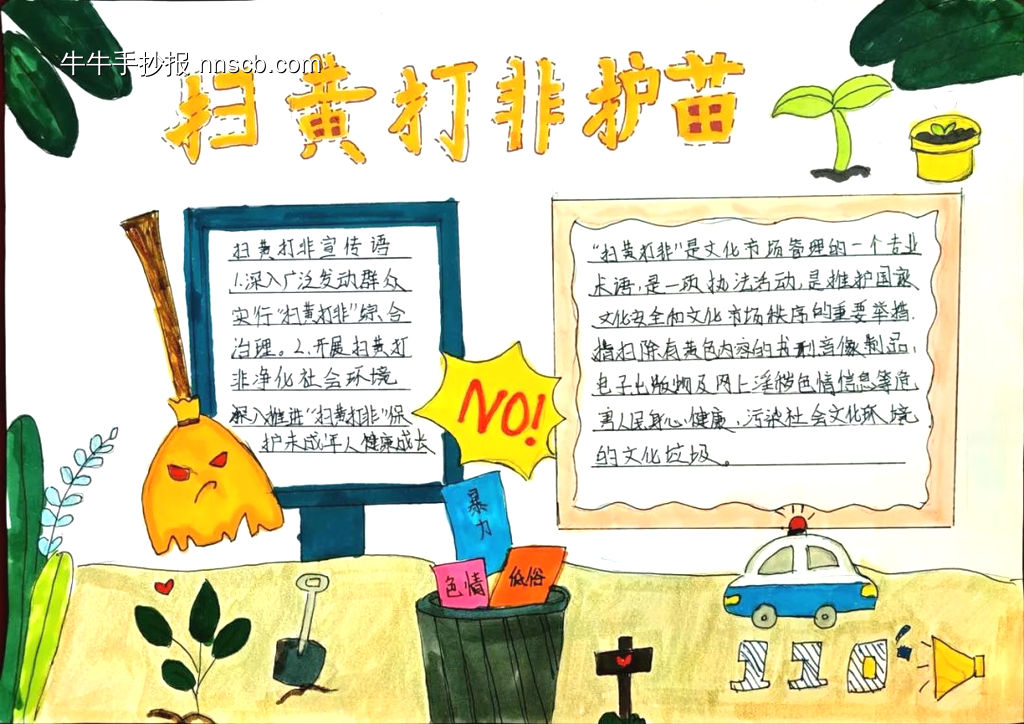 牛牛手抄报.nnscb.com
扫黄打非护苗
扫黄打非宣传语
1.深入广泛发动群众
实行"扫黄打非"综合
治理。2.开展扫黄打
非净化社会环境
深入推进"扫黄打非"保
护未成年人健康成长
"扫黄打非"是文化市场管理的一个专业
术语,是一项执法活动,是维护国家
文化安全和文化市场秩序的重要举措.
指扫除有黄色内容的书刊音像制品,
电子出版物及网上淫秽色情信息等危
害人民身心健康,污染社会文化环境
的文化垃圾。
NO!
暴力
色情
低俗
110